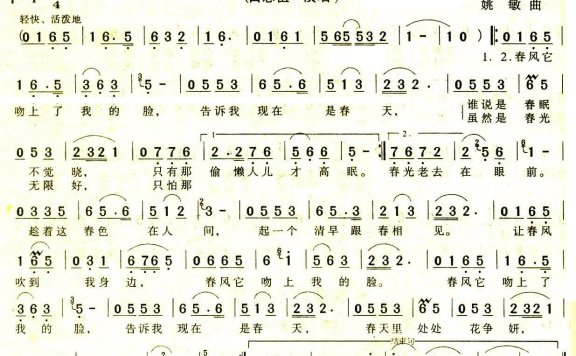 轻快、活泼地
姚 敏 曲
(0 1 6 5 | 1 6 . 5 | 6 3 2 | 1 6 . | 0 1 6 5 | 5 6 5 5 3 2 | 1 - | 1 0 ) ‖: 0 1 6 5 |
1. 2.春风它
1 6 . 5 | 3 6 3 | 5 - | 0 5 5 3 | 6 5 . 3 | 5 1 3 | 2 3 2 . | 0 5 5 3 | 1 6 5 |
吻上 了 我 的 脸, 告诉我 现在 是春 天, 谁说是 春眠
虽然是 春光
0 5 3 | 2 3 2 1 | 0 7 7 6 | 2 . 2 7 6 | 5 6 7 2 | 6 5 - :‖ 7 6 7 2 | 2 5 6 | 1 - |
不觉 晓, 只有那 偷 懒人儿 才 高 眠。 春光老去 在 眼 前。
无限 好, 只怕那
0 5 5 3 | 6 5 . 6 | 5 5 6 | 3 - | 0 5 5 3 | 6 5 . 3 | 2 1 3 | 2 3 2 . | 0 1 6 5 |
趁着这 春色 在人 间, 起一个 清早 跟 春相 见。 让春风
1 6 5 | 0 1 3 | 6 7 6 5 | 0 7 6 5 | 6 1 | 5 6 3 | 2 3 2 . | 0 1 6 5 | 1 6 . 5 |
吹到 我身 边, 春风它 吻 上 我 的 脸。 春风它 吻上 了
3 6 3 | 5 - | 0 5 5 3 | 6 5 . 3 | 5 1 3 | 2 3 2 . | 0 5 5 3 | 1 6 5 | 0 5 3 | 2 3 2 1 |
我 的 脸, 告诉我 现在 是春 天, 春天里 处处 花争 妍,